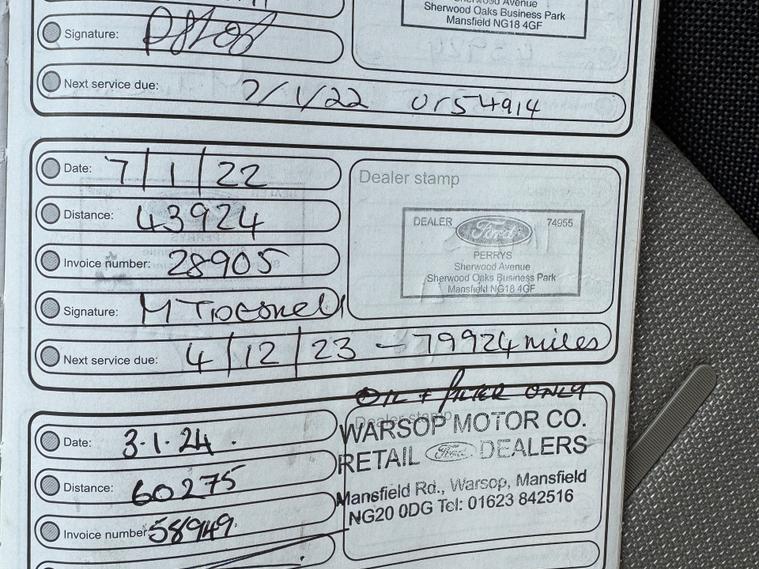 Sherwood Oaks Business Park
Mansfield NG18 4GF
Signature:
Next service due: 7/1/22 or 54914
Date: 7/1/22
Distance: 43924
Invoice number: 28905
Signature:
Next service due: 4/12/23 - 79924 miles
Dealer stamp
DEALER Ford 74955
PERRYS
Sherwood Avenue
Sherwood Oaks Business Park
Mansfield NG18 4GF
OIL + FILTER ONLY
Date: 3.1.24.
Distance: 60275
Invoice number: 58949
Dealer stamp
WARSOP MOTOR CO.
RETAIL Ford DEALERS
Mansfield Rd., Warsop, Mansfield
NG20 0DG Tel: 01623 842516